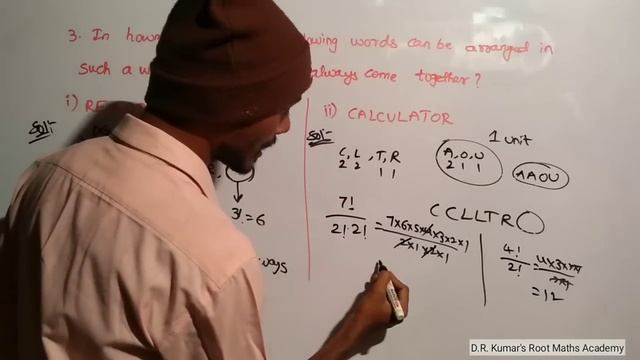 3. In how owing words can be arranged in
such a w always come together?
i) RE
ii) CALCULATOR
Sol:-
Sol:-
1 unit
C, L, T, R
2 2 1 1
A, O, U
2 1 1
AAOU
3! = 6
ways
CCLLTR
7!/2! 2! = 7×6×5×4×3×2×1/2×1×2×1
4!/2! = 4×3×2×1/2×1
= 12
D.R. Kumar's Root Maths Academy